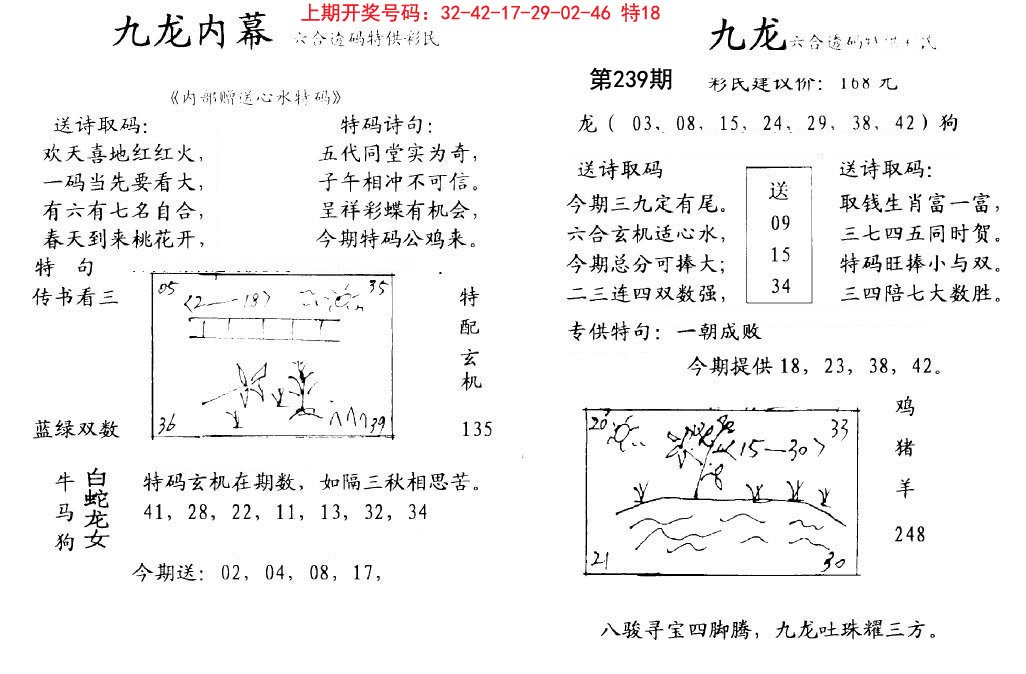 上期开奖号码：32-42-17-29-02-46 特18
九龙内幕 六合透码特供彩民
《内部赠送心水特码》
送诗取码：
欢天喜地红红火，
一码当先要看大，
有六有七名自合，
春天到来桃花开，
特码诗句：
五代同堂实为奇，
子午相冲不可信。
呈祥彩蝶有机会，
今期特码公鸡来。
特 句
传书看三
蓝绿双数
05
35
<2—18>
36
39
特
配
玄
机
135
牛
马
狗
白蛇龙女
特码玄机在期数，如隔三秋相思苦。
41，28，22，11，13，32，34
今期送：02，04，08，17，
九龙 六合透码特供彩民
第239期
彩民建议价：168 元
龙（ 03、08、15、24、29、38、42）狗
送诗取码
今期三九定有尾。
六合玄机适心水，
今期总分可捧大；
二三连四双数强，
送
09
15
34
送诗取码：
取钱生肖富一富，
三七四五同时贺。
特码旺捧小与双。
三四陪七大数胜。
专供特句：一朝成败
今期提供 18，23，38，42。
20
33
<15—30>
21
30
鸡
猪
羊
248
八骏寻宝四脚腾，九龙吐珠耀三方。